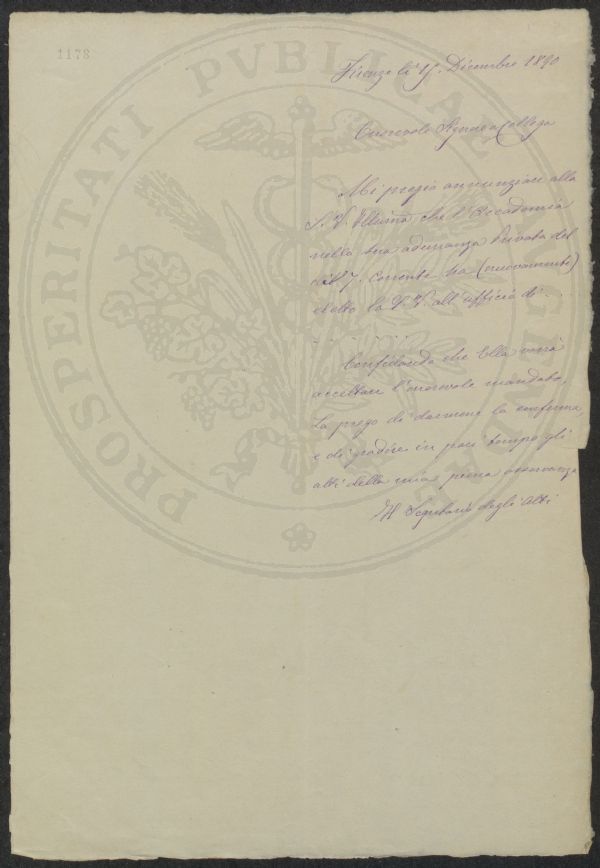 1178
PROSPERITATI PVBLICAE
Firenze li Dicembre 1890
Onorevole Signore e Collega
Mi pregio annunziare alla
S. V. Illma che l'Accademia
nella sua adunanza Privata del
dì 7. Corrente ha (nuovamente)
eletto la S. V. all'ufficio di . .
. . . . . . . . .
Confidando che Ella vorrà
accettare l'onorevole mandato,
La prego di darmene la conferma,
e di gradire in pari tempo gli
atti della mia piena osservanza
Il Segretario degli Atti